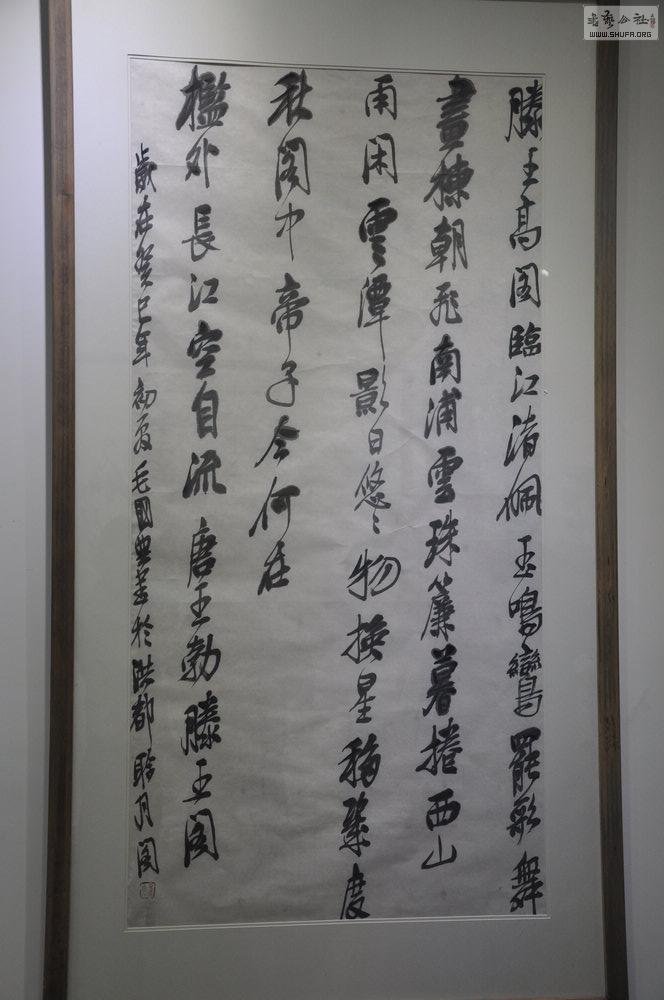 滕王高阁臨江渚佩玉鳴鸞罷歌舞
畫棟朝飛南浦雲珠簾暮捲西山
雨闲雲潭影日悠〻物换星移幾度
秋阁中帝子今何在
檻外長江空自流唐王勃滕王阁
歲在癸巳年初夏毛國典書於洪都聆月阁
書藝公社
WWW.SHUFA.ORG